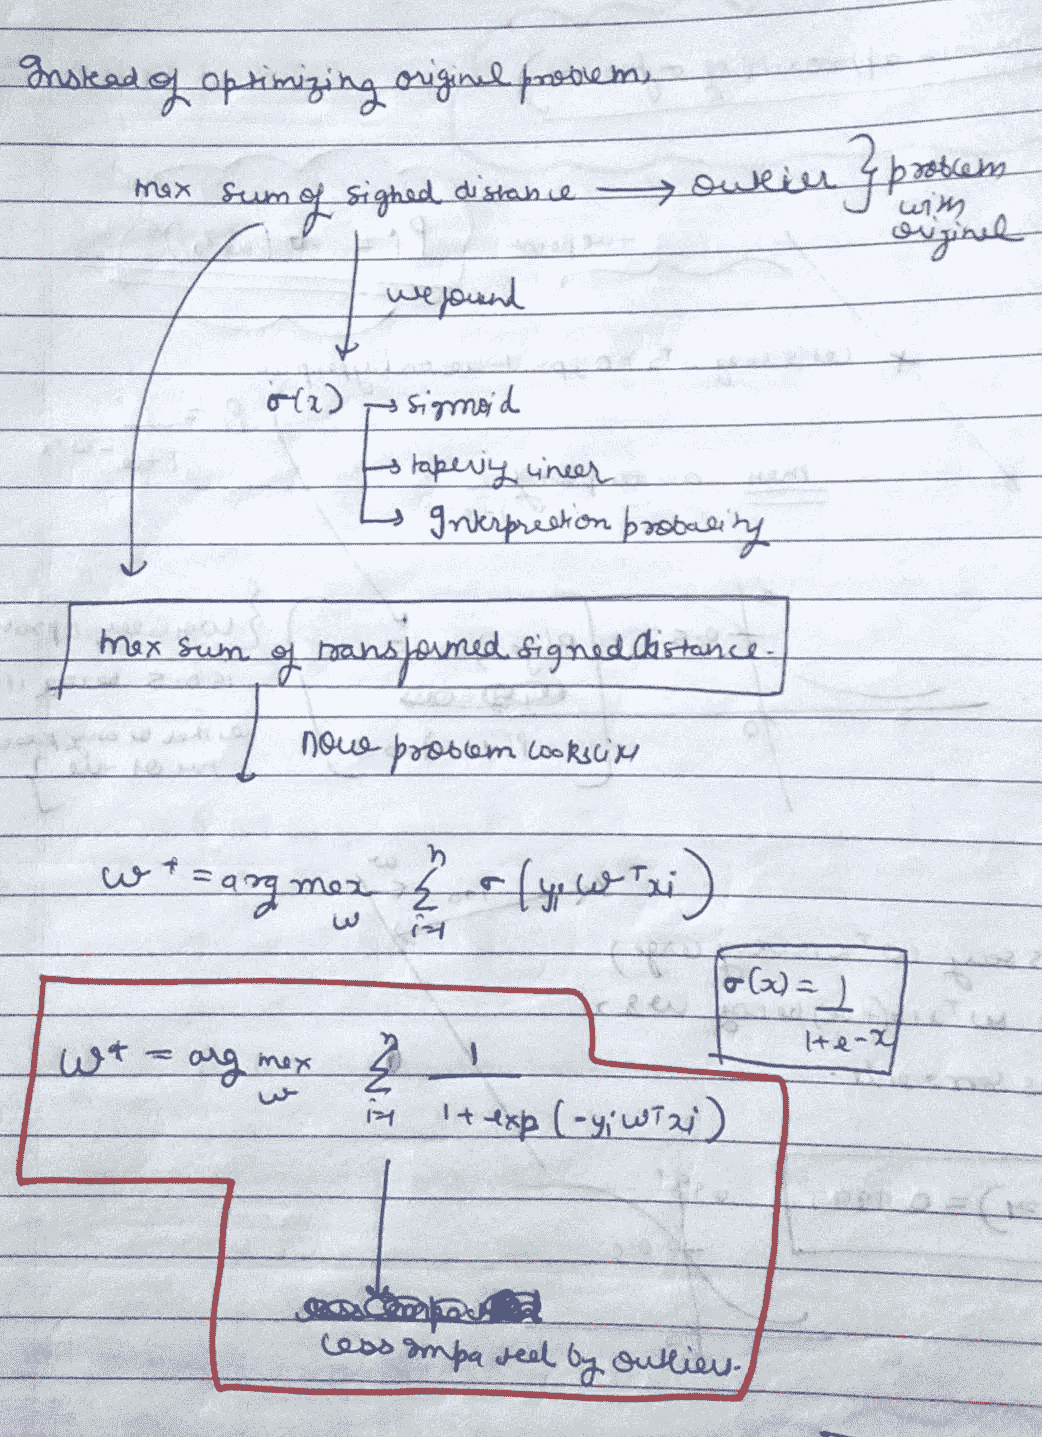 Instead of optimizing original problem,
max sum of signed distance → outlier } problem
with
original
we found
σ(x) → sigmoid
→ tapering linear
→ Interpretion probability
max sum of transformed signed distance.
now problem looks like
w* = arg max Σ σ (yi wᵀxi)
w i=1 n
σ(x) = 1
1+e-x
w* = arg max Σ 1
w i=1 n 1 + exp (-yi wᵀxi)
less impacted by outliers.